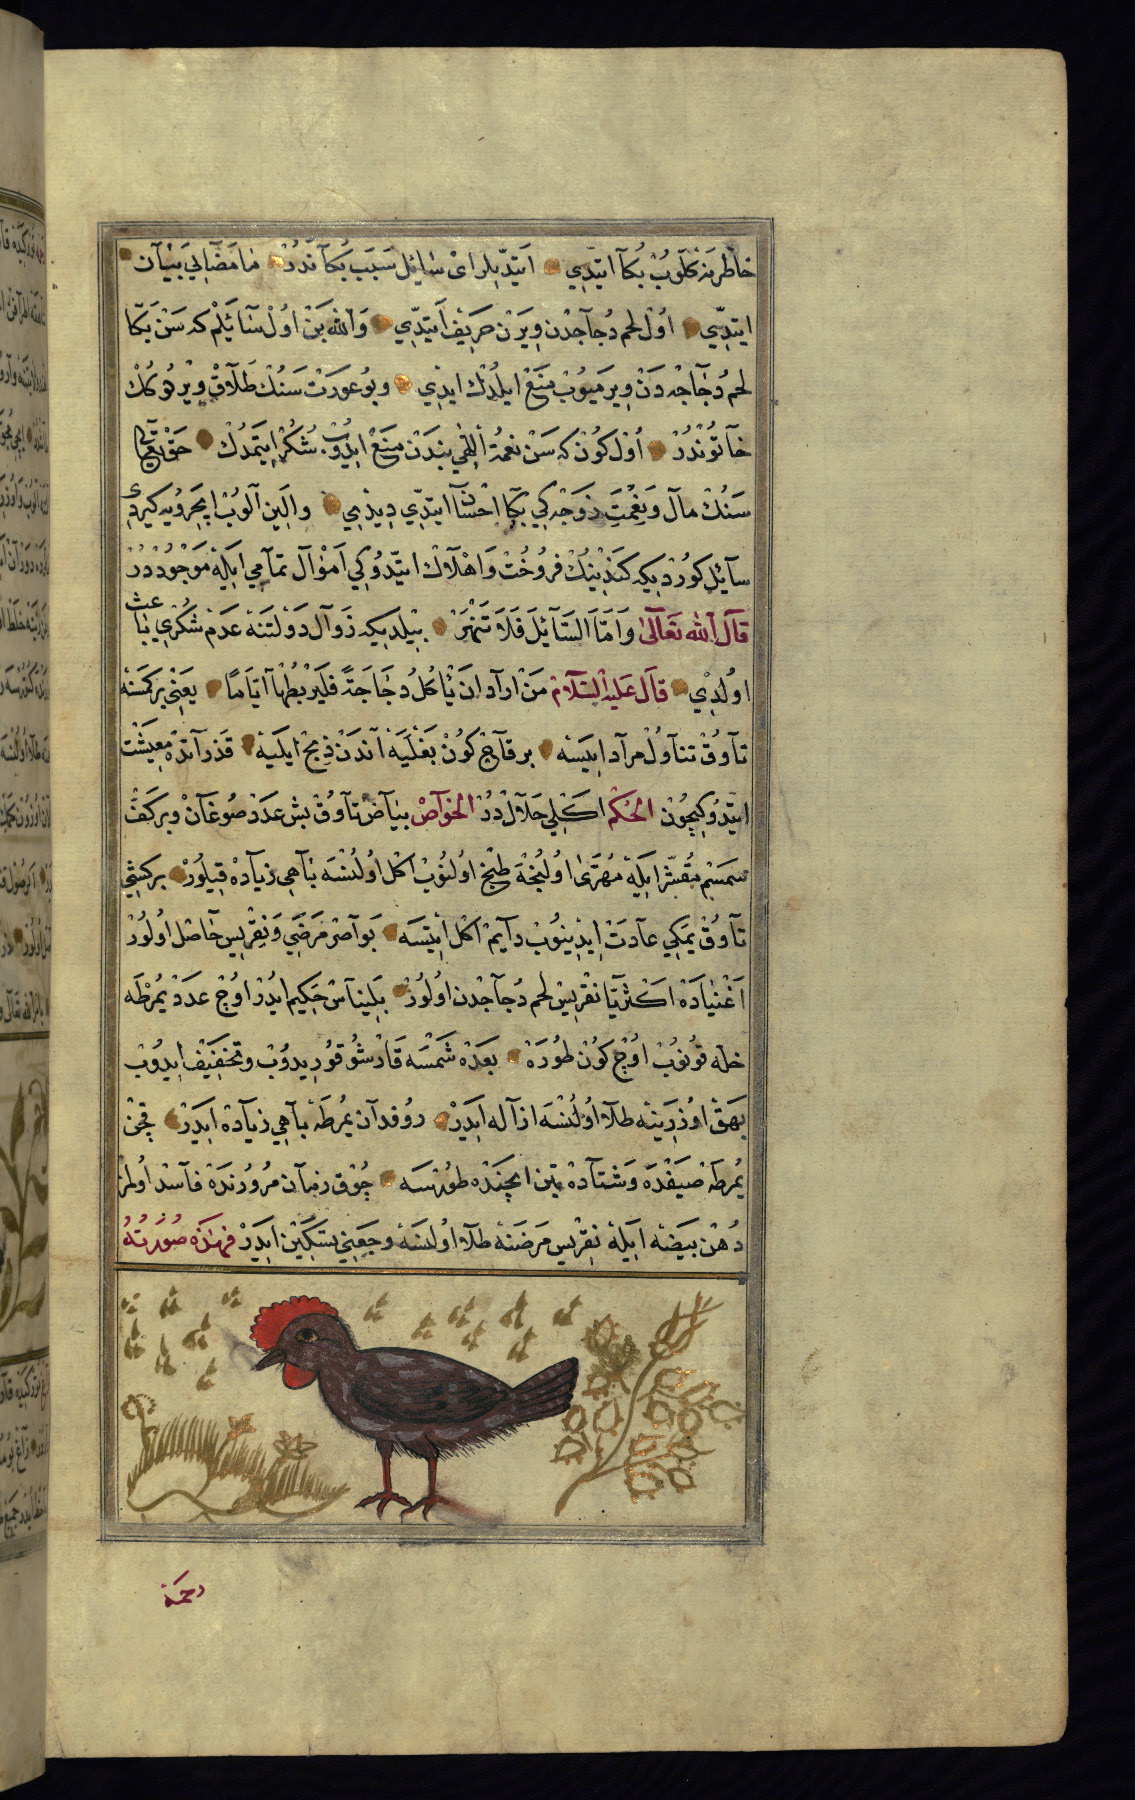 خاطرينه كلوب بكآ ايتدي ايتديلر اى سائل سبب بكآ ندر ما مضايي بيان
ايتدي اول لحم دجاجدن ويرن حريف ايتدي والله بن اول سائلم كه سن بكا
لحم دجاجه دن ويرميوب منع ايلدك ايدي وبو عورت سنك طلاق ويردوكك
خاتوندر اول كون كه سن نعمة اللهي بندن منع ايدوب شكر ايتمدك حق تعالى
سنك مال و نعمت زوجه كي بكا احسان ايتدي ديدي والين آلوب ايچرويه كيردي
سائل كوردى كه كندينك فروخت و اهلاك ايتدوكي اموال تمامي ايله موجوددر
قال الله تعالى واما السائل فلا تنهر بيلدى كه زوال دولتنه عدم شكرى باعث
اولدي قال عليه السلام من اراد ان ياكل دجاجة فليربطها اياما يعني بر كمسنه
تاوق تناول مراد ايتسه بر قاچ كون بغليه آندن ذبح ايليه قذر آنده معيشت
ايتدوكيچون الحكم اكلي حلالدر الخواص بياض تاوق بش عدد صوغان و بر كف
سمسم مقشر ايله مهرى اولنجه طبخ اولنوب اكل اولنسه باهي زياده قيلور بر كشي
تاوق يمكي عادت ايدينوب دايم اكل ايتسه بواصر مرضي و نقريس حاصل اولور
اغنياده اكثريا نقريس لحم دجاجدن اولور بليناس حكيم ايدر اوچ عدد يمرطه
خله قونوب اوچ كون طوره بعده شمسه قارشو قوريدوب و تخفيف ايدوب
بهق اوزرينه طلا اولنسه ازاله ايدر روفدان يمرطه باهي زياده ايدر قچن
يمرطه صيفده و شتاده تبن ايچنده طورسه چوق زمان مرورنده فاسد اولمز
دهن بيضه ايله نقريس مرضنه طلا اولنسه وجعني تسكين ايدر فهذه صورته
دجمة